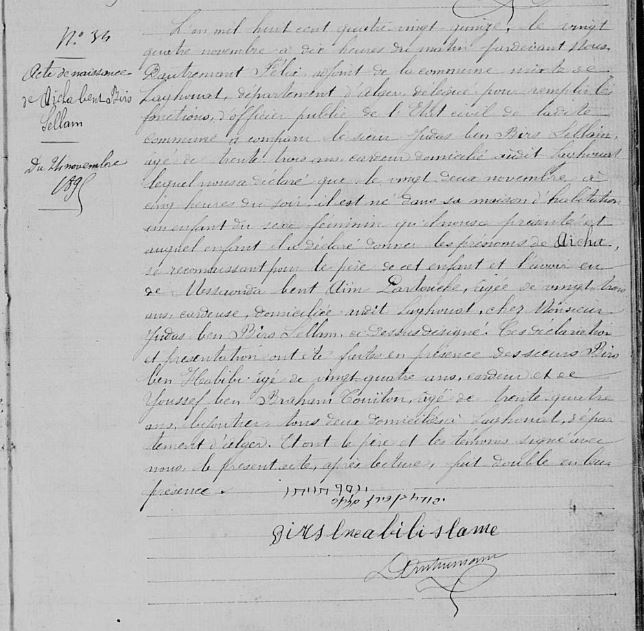 N° 34
Acte de naissance
de Aicha bent Birs
Sellam
Du 24 novembre
189
L'an mil huit cent quatre vingt quinze, le vingt
quatre novembre à dix heures du matin pardevant Nous,
Pautremant Félix adjoint de la commune mixte de
Laghouat, département d'Alger, délégué pour remplir les
fonctions d'officier public de l'Etat civil de ladite
commune a comparu le sieur Judas ben Birs Sellam,
agé de trente trois ans, cardeur domicilié audit Laghouat
lequel nous a déclaré que le vingt deux novembre à
cinq heures du soir, il est né dans sa maison d'habitation
un enfant du sexe féminin qu'il nous a présenté et
auquel enfant il a déclaré donner les prénoms de Aicha,
se reconnaissant pour le père de cet enfant et l'avoir eu
de Messaouda bent Aïm Partouche, agée de vingt trois
ans, cardeuse, domiciliée audit Laghouat, chez Monsieur
Judas ben Birs Sellam, ci-dessus désigné. Ces déclaration
et présentation ont été faites en présence des sieurs Birs
ben Habibi agé de vingt quatre ans, cardeur et de
Youssef ben Braham Touiton, agé de trente quatre
ans, bijoutier tous deux domiciliés à Laghouat, dépar
tement d'Alger. Et ont le père et les témoins signé avec
nous, le présent acte, après lecture, fait double en leur
présence.